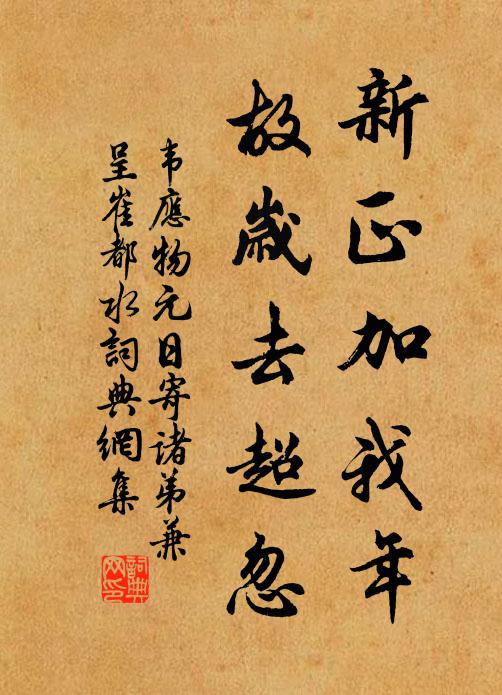 新正加我年
故歲去超忽
韦應物元日寄诸弟兼
呈崔都水詞典網集
詞典网印